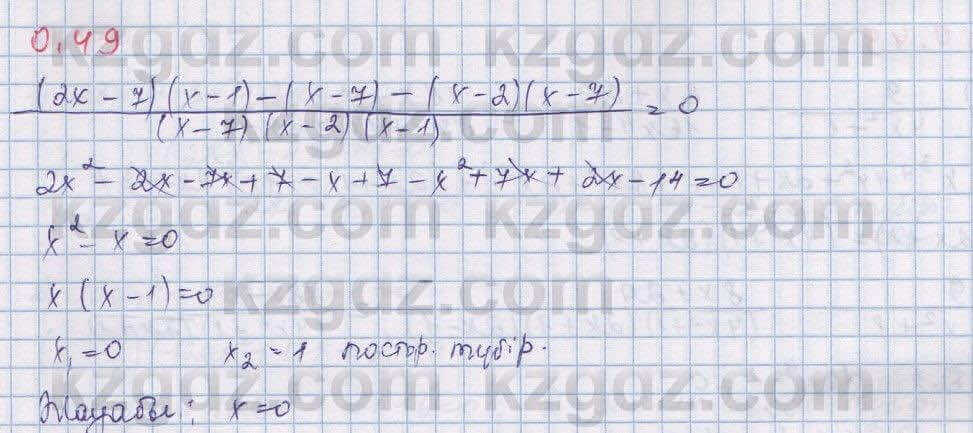 0.49
(2x - 7)(x - 1) - (x - 7) - (x - 2)(x - 7)
(x - 7)(x - 2)(x - 1)
= 0
2x² - 2x - 7x + 7 - x + 7 - x² + 7x + 2x - 14 = 0
x² - x = 0
x(x - 1) = 0
x₁ = 0 x₂ = 1 түбір.
Жауабы: x = 0
kzgdz.com kzgdz.com
kzgdz.com kzgdz.com
kzgdz.com
kzgdz.com kzgdz.com